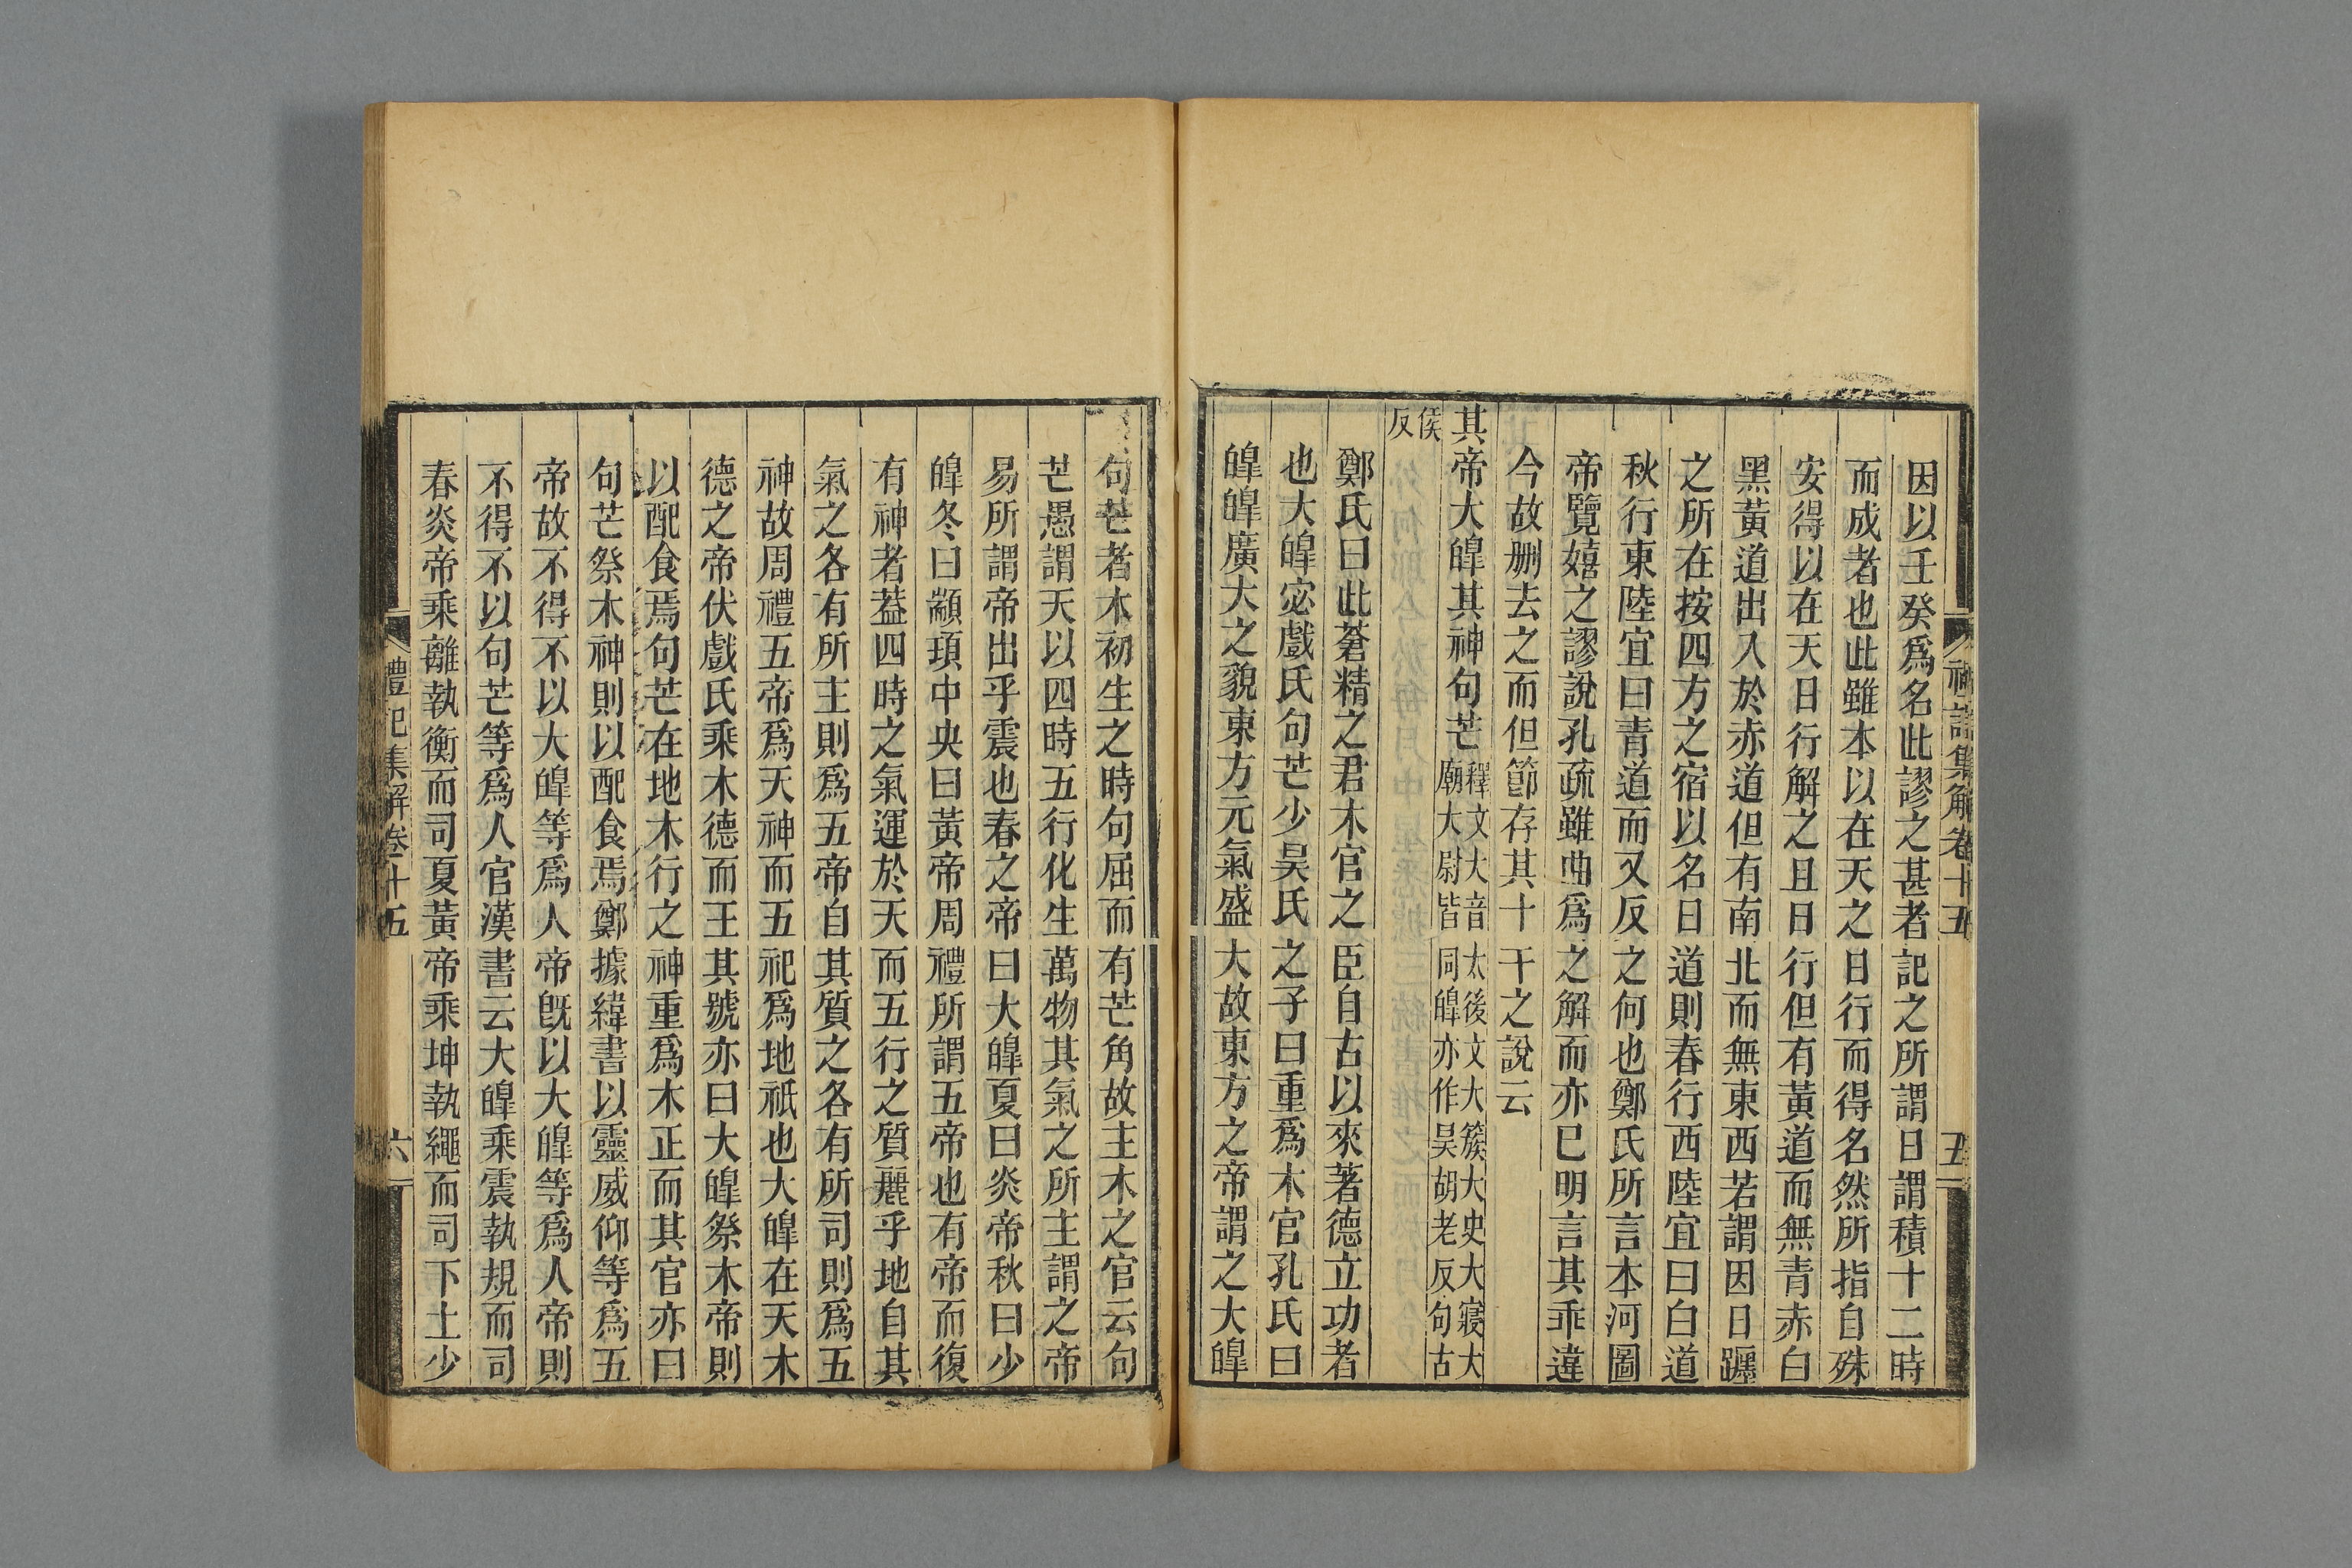 禮記集解卷十五
五
因以壬癸爲名此謬之甚者記之所謂日謂積十二時
而成者也此雖本以在天之日行而得名然所指自殊
安得以在天日行解之且日行但有黃道而無青赤白
黑黃道出入於赤道但有南北而無東西若謂因日躔
之所在按四方之宿以名日道則春行西陸宜曰白道
秋行東陸宜曰青道而又反之何也鄭氏所言本河圖
帝覽嬉之謬說孔疏雖曲爲之解而亦已明言其乖違
今故刪去之而但節存其十干之說云
其帝大皞其神句芒
釋文大音太後文大簇大史大寢大
廟大尉皆同皞亦作昊胡老反句古
侯
反
鄭氏曰此蒼精之君木官之臣自古以來著德立功者
也大皞宓戲氏句芒少昊氏之子曰重爲木官孔氏曰
皞皞廣大之貌東方元氣盛大故東方之帝謂之大皞
句芒者木初生之時句屈而有芒角故主木之官云句
芒愚謂天以四時五行化生萬物其氣之所主謂之帝
易所謂帝出乎震也春之帝曰大皞夏曰炎帝秋曰少
皞冬曰顓頊中央曰黃帝周禮所謂五帝也有帝而復
有神者葢四時之氣運於天而五行之質麗乎地自其
氣之各有所主則爲五帝自其質之各有所司則爲五
神故周禮五帝爲天神而五祀爲地祇也大皞在天木
德之帝伏戲氏乘木德而王其號亦曰大皞祭木帝則
以配食焉句芒在地木行之神重爲木正而其官亦曰
句芒祭木神則以配食焉鄭據緯書以靈威仰等爲五
帝故不得不以大皞等爲人帝旣以大皞等爲人帝則
不得不以句芒等爲人官漢書云大皞乘震執規而司
春炎帝乘離執衡而司夏黃帝乘坤執繩而司下土少
禮記集解卷十五
六